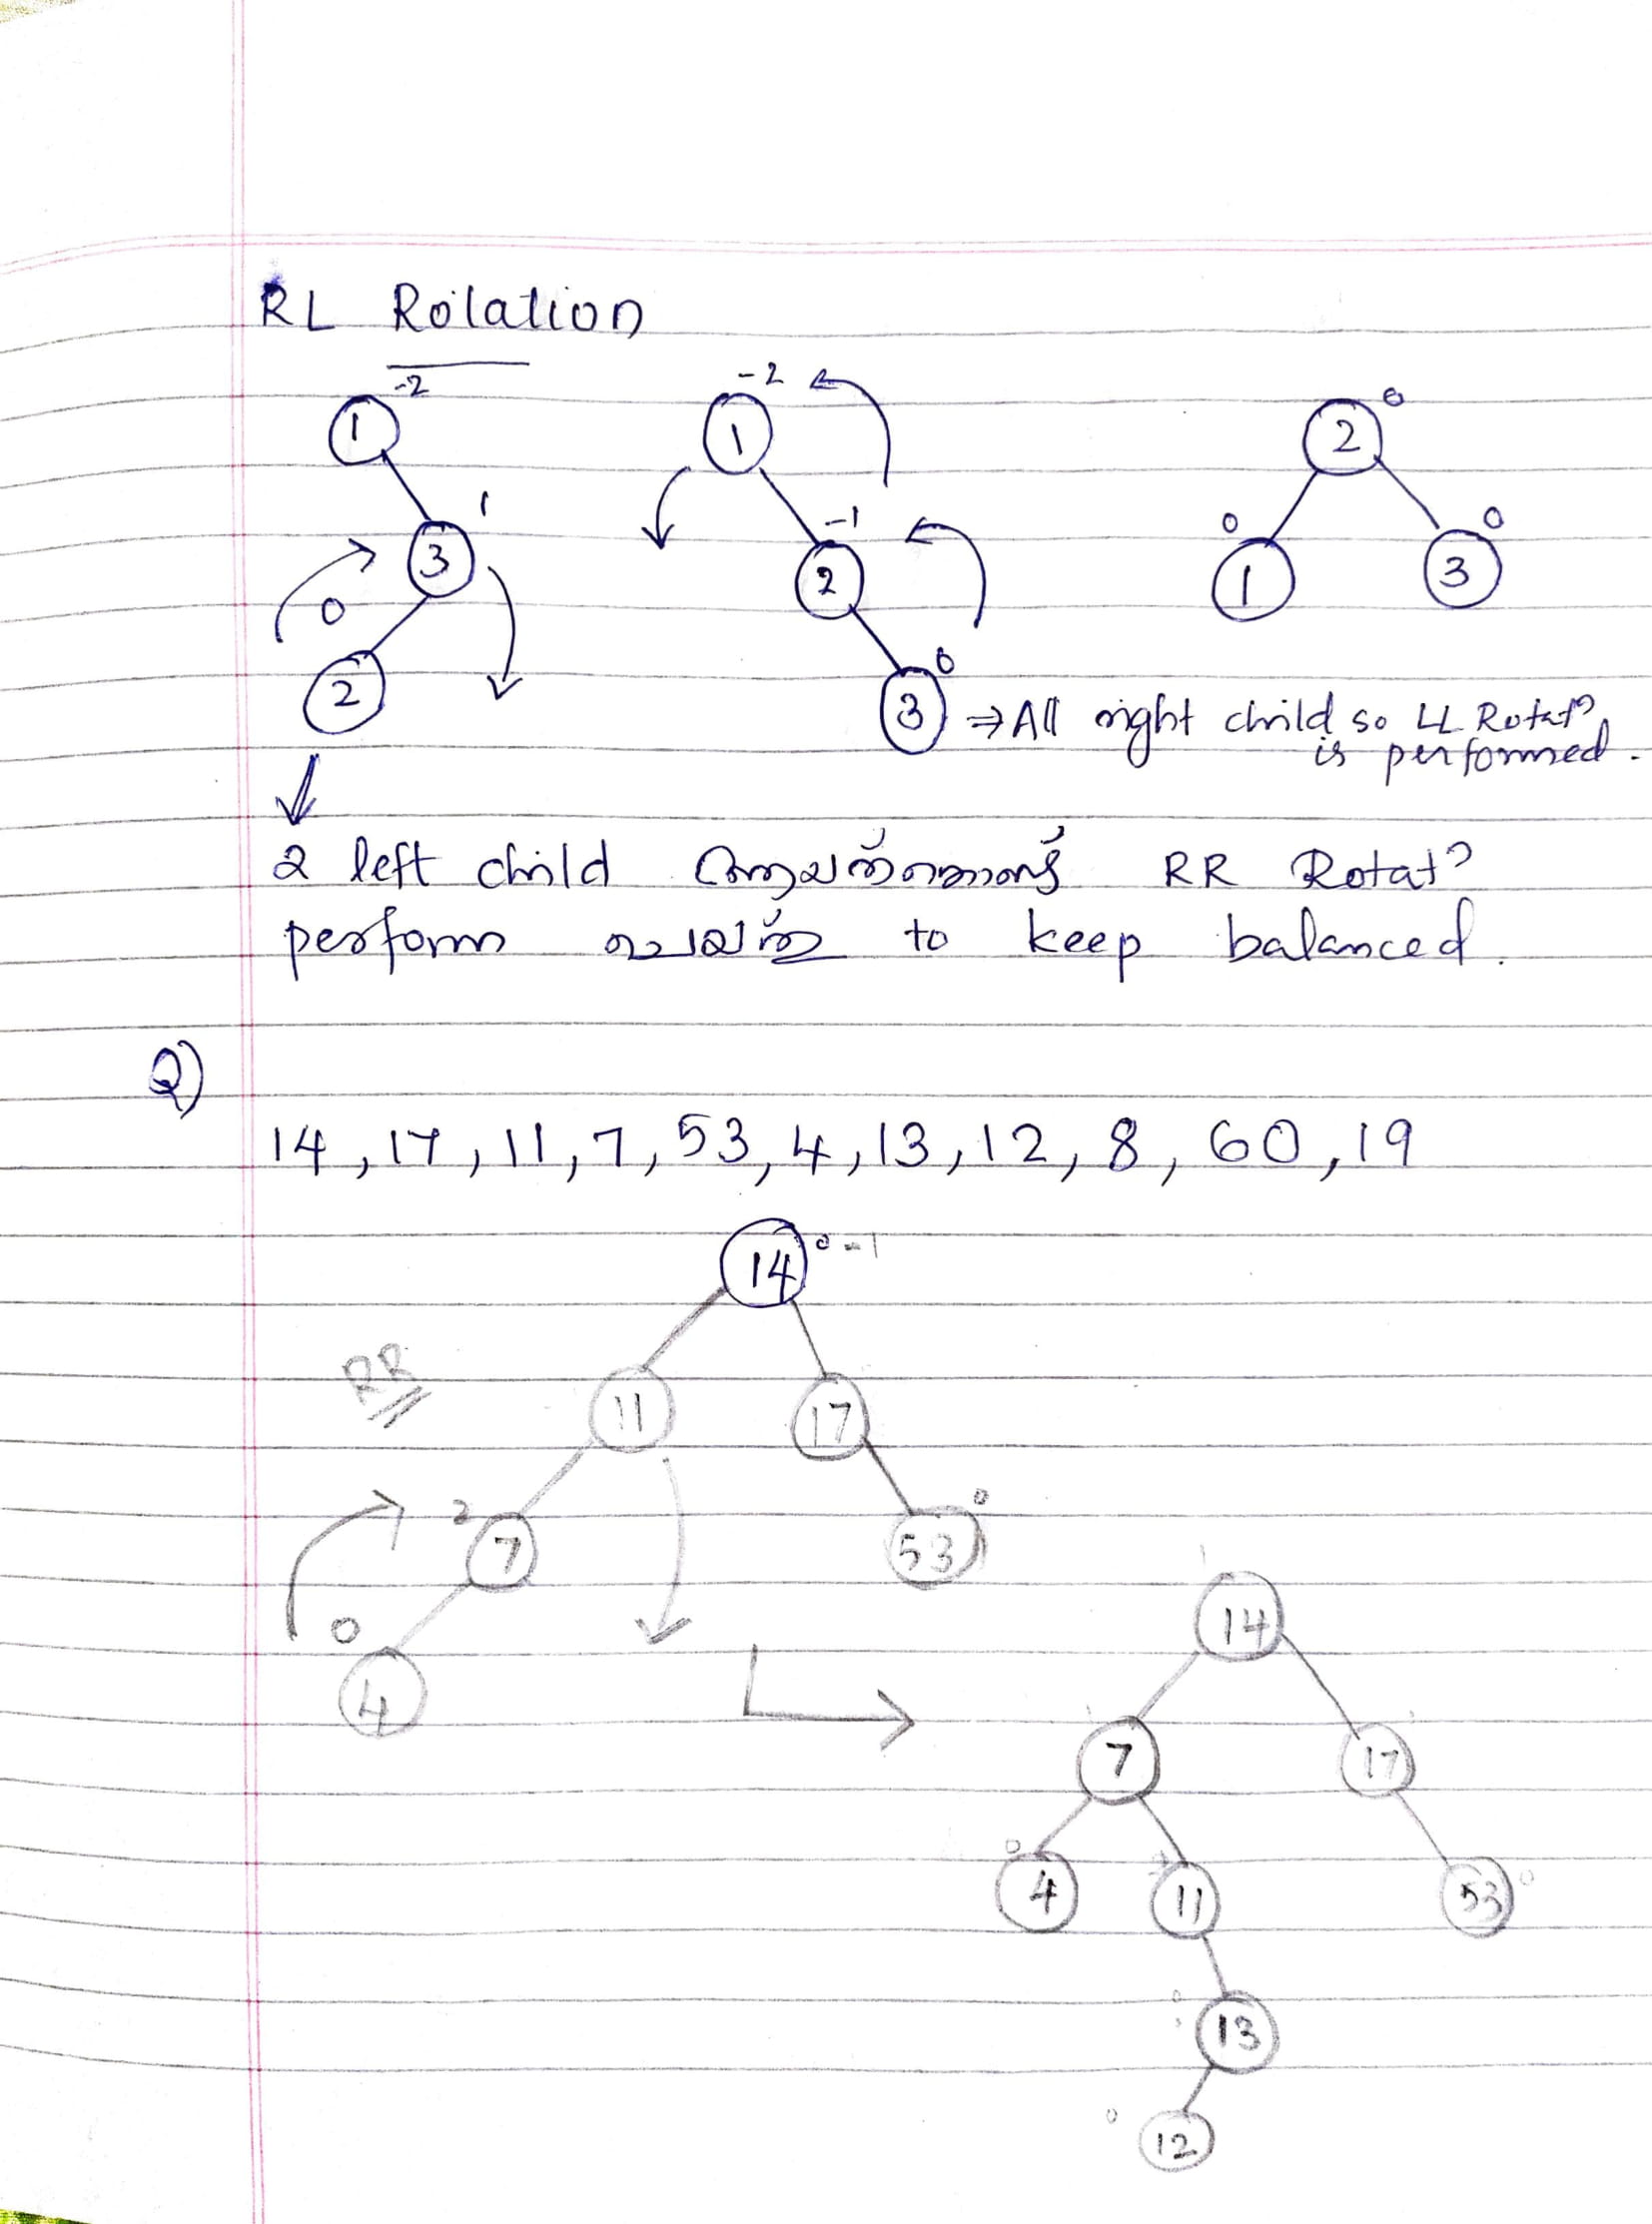 RL Rotation
-2
1
1
3
0
2
-2
1
-1
2
0
3
0
2
0
1
0
3
⇒ All right child so LL Rotatⁿ
is performed.
2 left child RR Rotatⁿ
perform to keep balanced.
Q)
14, 17, 11, 7, 53, 4, 13, 12, 8, 60, 19
14
0 -1
RR
11
17
2
7
0
53
0
4
14
7
17
0
4
11
53
0
13
0
12